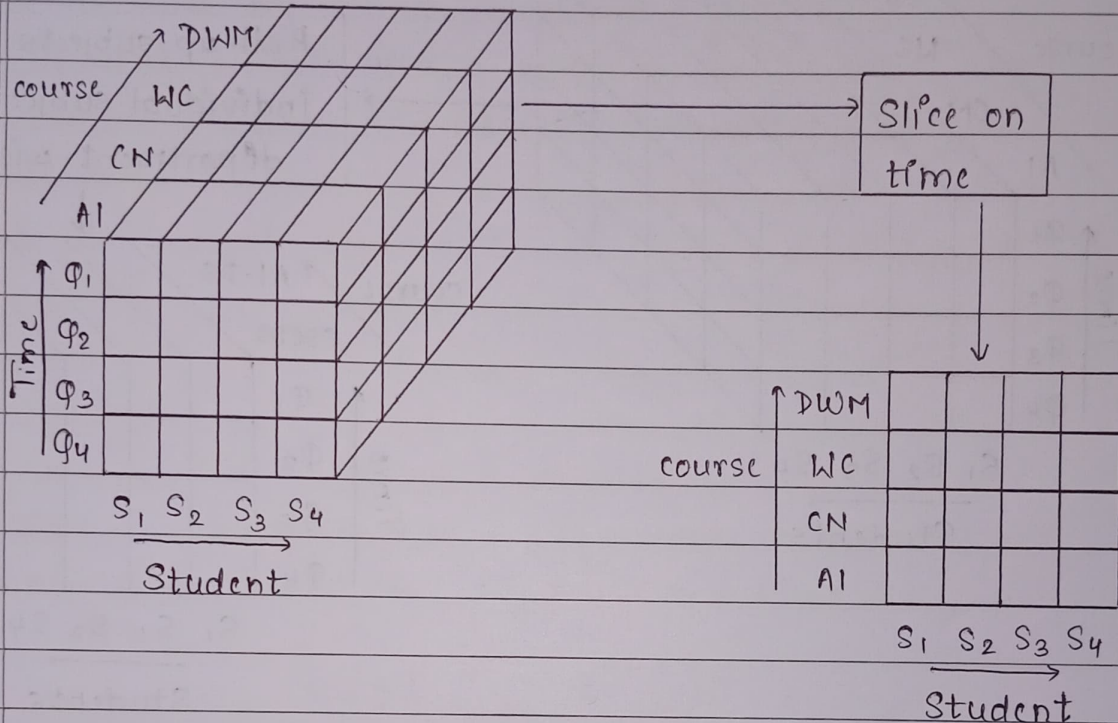 DWM
course
WC
CN
AI
Time
Q1
Q2
Q3
Q4
S1 S2 S3 S4
Student
Slice on
time
DWM
course WC
CN
AI
S1 S2 S3 S4
Student